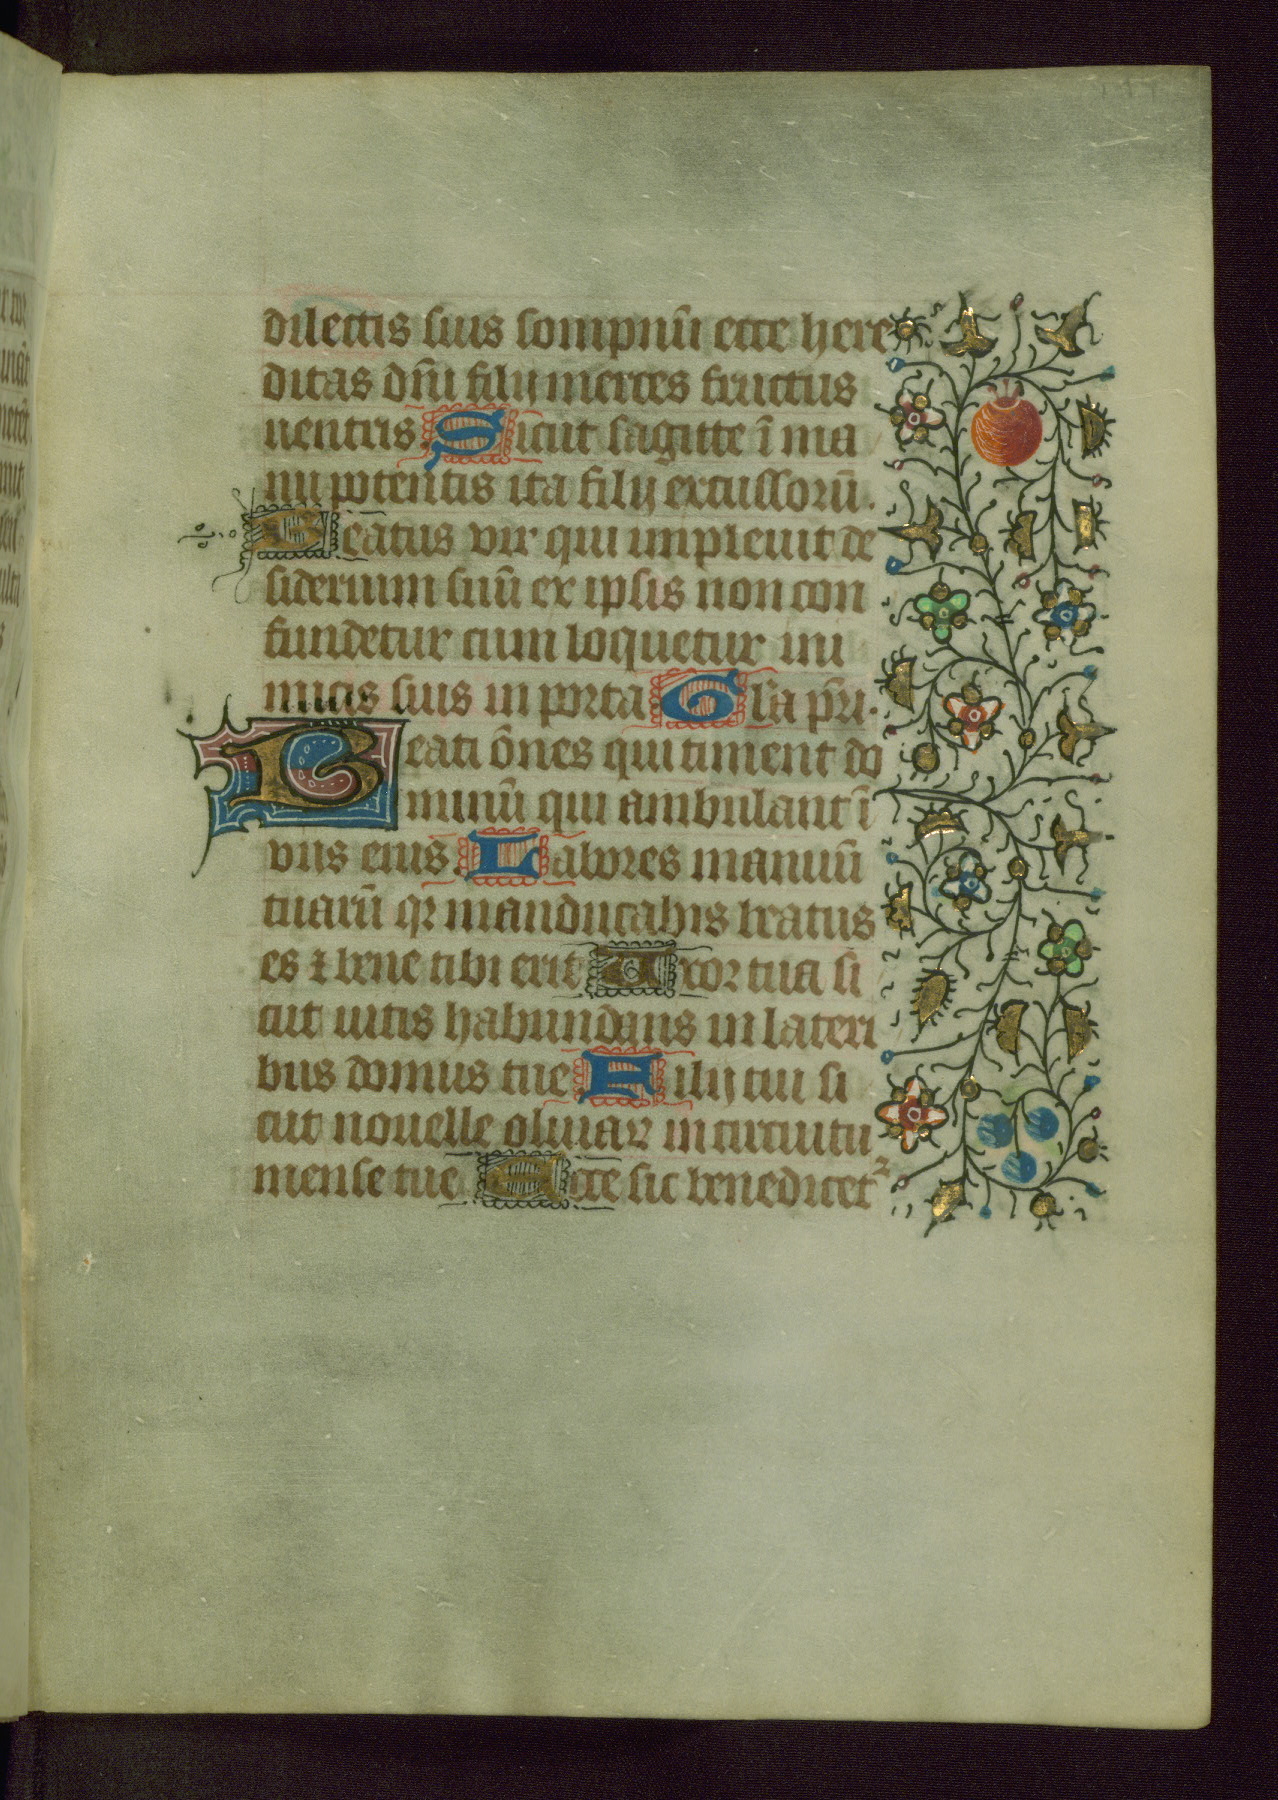 dilectis suis sompnū ecce here
ditas dñi filij merces fructus
uentris. Sicut sagitte ī ma
nu potentis ita filij excussorū.
Beatus vir qui impleuit de
siderium suū ex ipsis non con
fundetur cum loquetur ini
micis suis in porta Gl̃a pr̃i.
Beati ōnes qui timent do
minū qui ambulant ī
viis eius. Labores manuū
tuarū qꝛ manducabis beatus
es ⁊ bene tibi erit Uxor tua si
cut uitis habundans in lateri
bus domus tue Filij tui si
cut nouelle oliuaꝝ in circuitu
mense tue Ecce sic benedicetᷣ